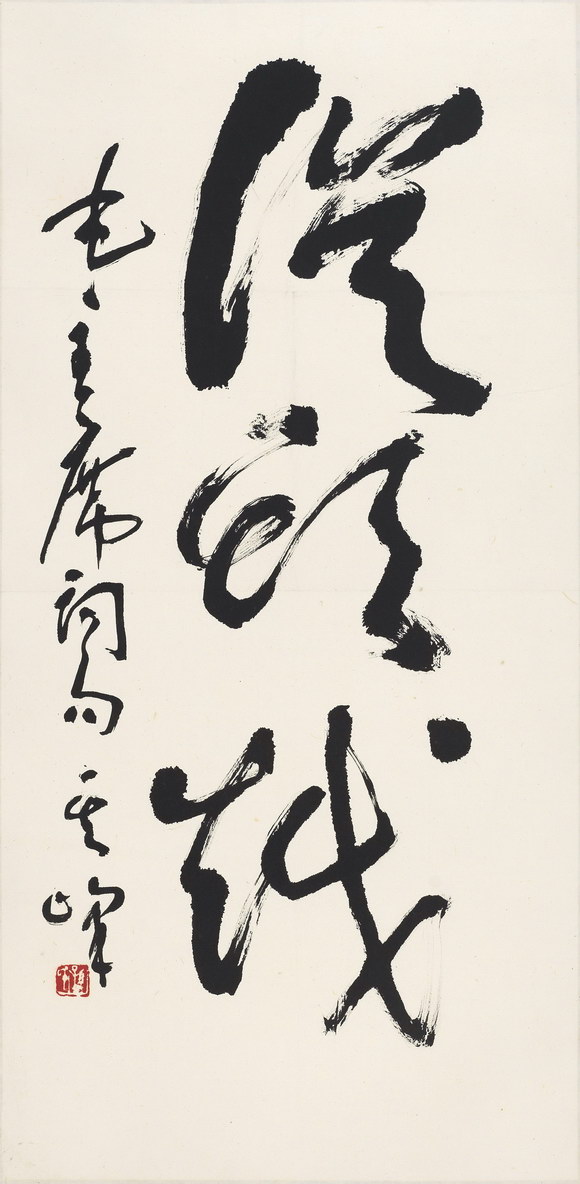 從頭越
毛主席詞句 其峰